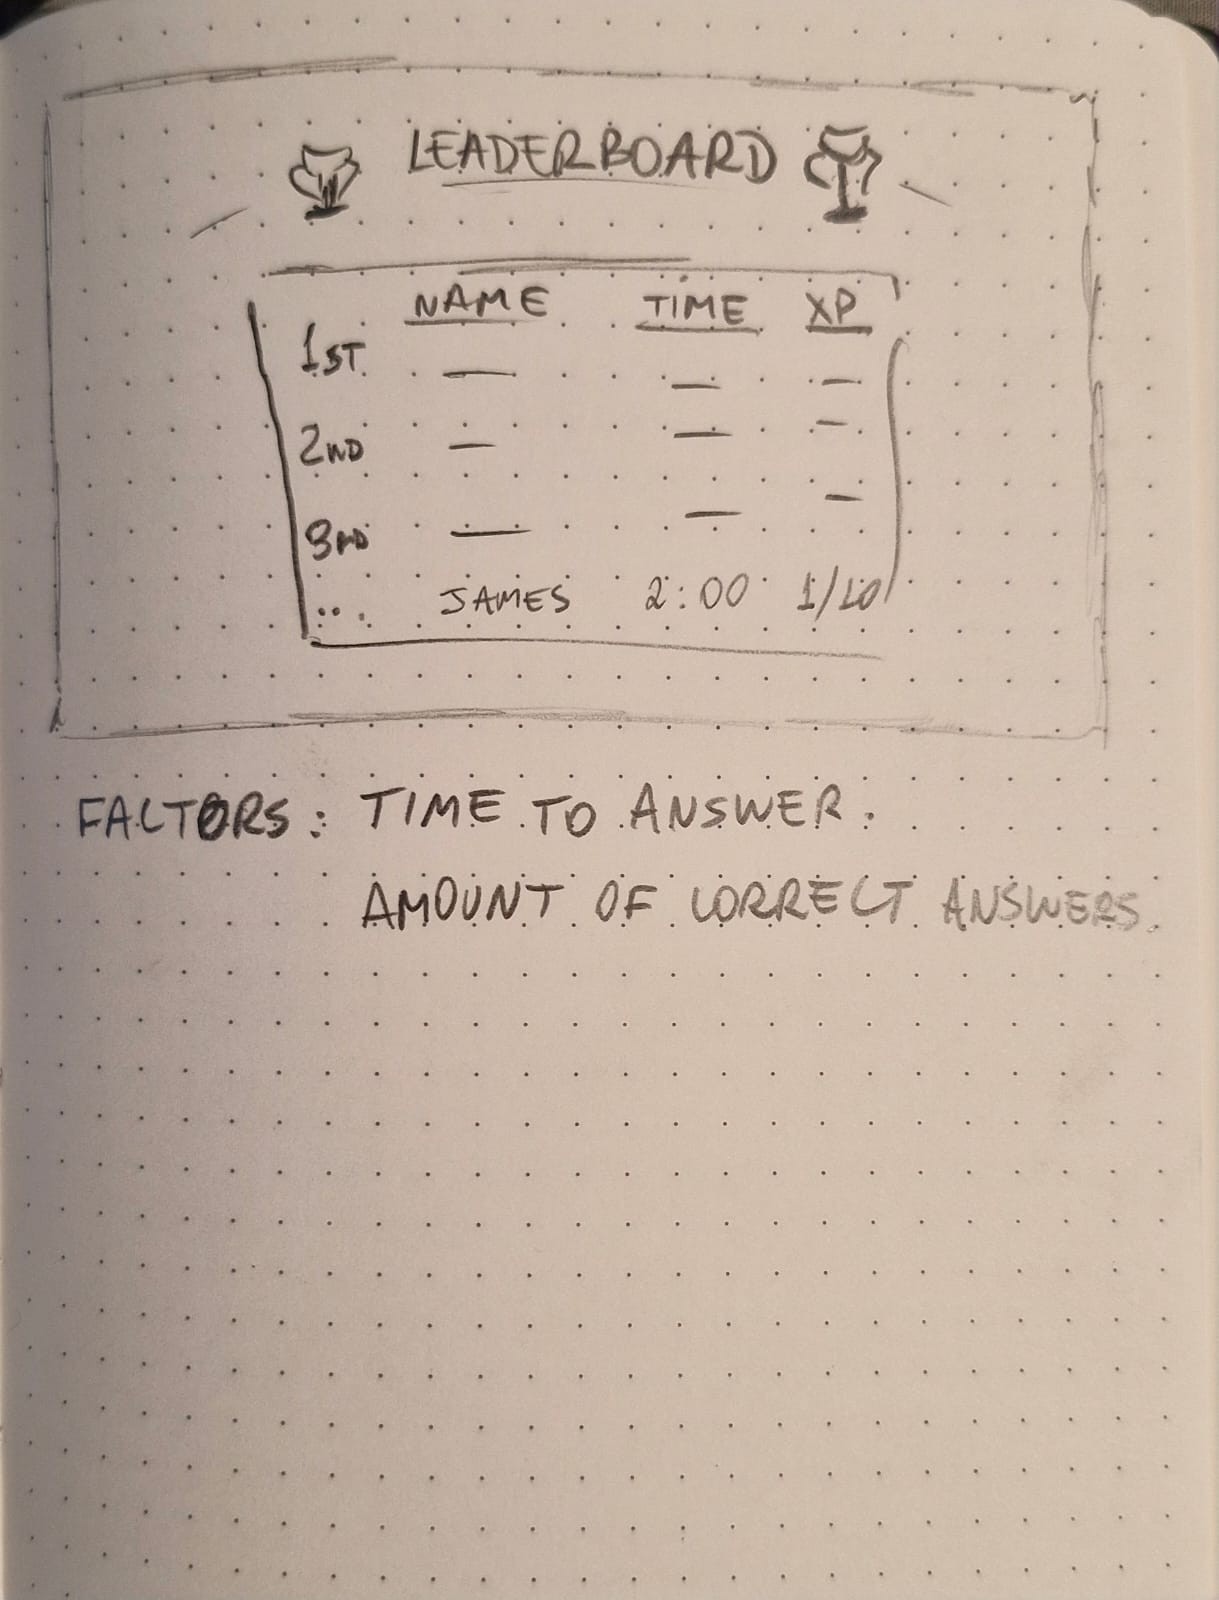 LEADERBOARD
NAME TIME XP
1ST
2ND
3RD
... JAMES 2:00 1/10
FACTORS: TIME TO ANSWER.
AMOUNT OF CORRECT ANSWERS.